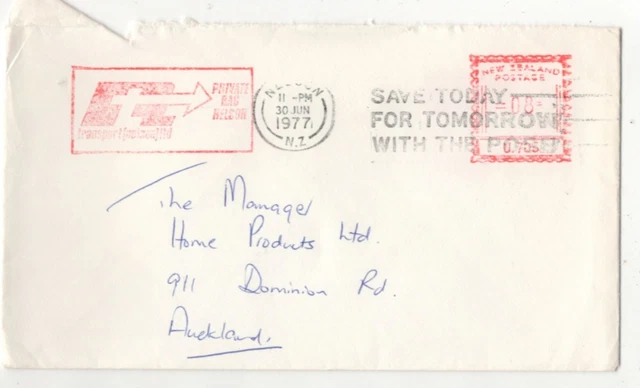 PRIVATE
BAG
NELSON
transport(nelson)ltd
NELSON
11 -PM
30 JUN
1977
N.Z.
SAVE TODAY
FOR TOMORROW
WITH THE POSB
NEW ZEALAND
POSTAGE
08
The Manager
Home Products Ltd.
911 Dominion Rd.
Auckland.